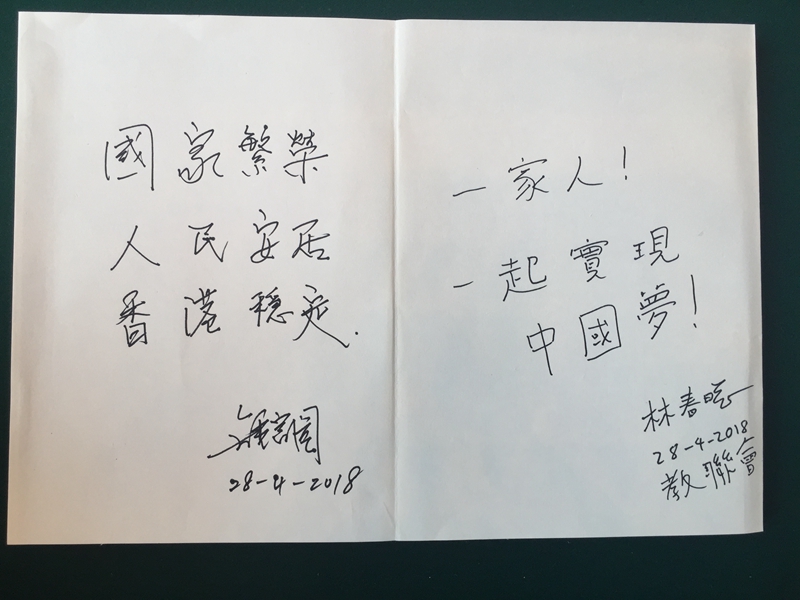 國家繁榮
人民安居
香港穩定.
28-4-2018
一家人!
一起實現
中國夢!
林春曉
28-4-2018
教聯會